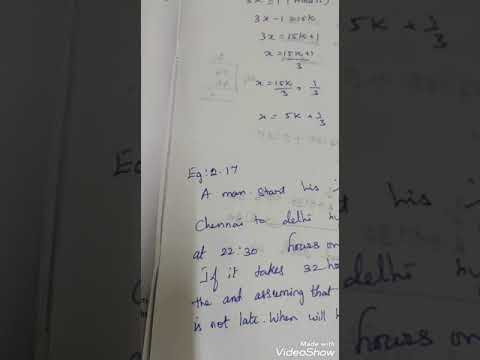 3x - 1 = 15K
3x = 15K+1
x = 15K+1
3
x = 15K/3 + 1/3
x = 5K + 1/3
Eg: 2.17
A man starts his
Chennai to delhi
at 22:30 hours on
If it takes 32
the and assuming that
is not late. When will
5K + 1/3
delhi
hours on
Made with
VideoShow